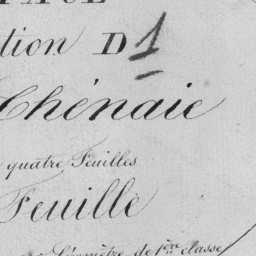 tion D1
Chênaie
quatre Feuilles
Feuille
Géomètre de 1ère classe